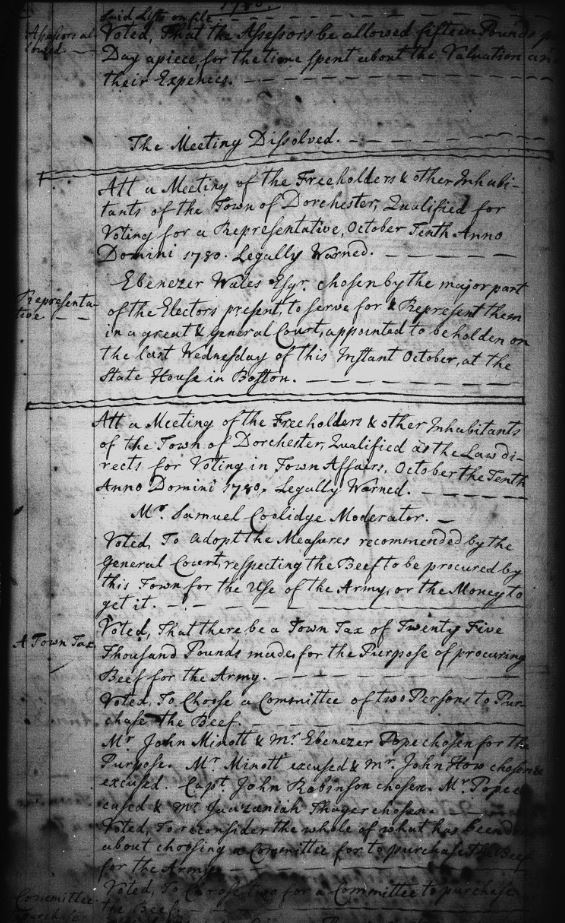 1780.
Said Lists on file
Assessors al-
lowed
Voted, That the Assessors be allowed fifteen Pounds p
Day apiece for the time spent about the Valuation and
their Expences.
The Meeting Dissolved.
Att a Meeting of the Freeholders & other Inhabi-
tants of the Town of Dorchester, Qualified for
Voting for a Representative, October Tenth Anno
Domini 1780. Legally Warned.
Representa-
tive
Ebenezer Wales Esqr. chosen by the major part
of the Electors present, to serve for & Represent them
in a great & General Court, appointed to be holden on
the last Wednesday of this Instant October, at the
State House in Boston.
Att a Meeting of the Freeholders & other Inhabitants
of the Town of Dorchester, Qualified as the Law di-
rects for Voting in Town Affairs, October the Tenth
Anno Domini 1780, Legally Warned.
Mr. Samuel Coolidge Moderator.
Voted, To adopt the Measures recommended by the
General Court, respecting the Beef to be procured by
this Town for the Use of the Army, or the Money to
get it.
A Town Tax,
Voted, That there be a Town Tax of Twenty Five
Thousand Pounds made, for the Purpose of procuring
Beef for the Army.
Voted, To Choose a Committee of two Persons to Pur-
chase the Beef.
Mr John Minott & Mr Ebenezer Pope chosen for the
Purpose. Mr Minott excused & Mr John How chosen &
excused. Capt John Robinson chosen. Mr Pope ex
cused & Mr Thayer chosen.
Voted, To reconsider the whole of what has been
about choosing a Committee for to purchase the Beef
for the Army.
Committee
purchase
Voted, To choose two for a Committee to purchase
the Beef